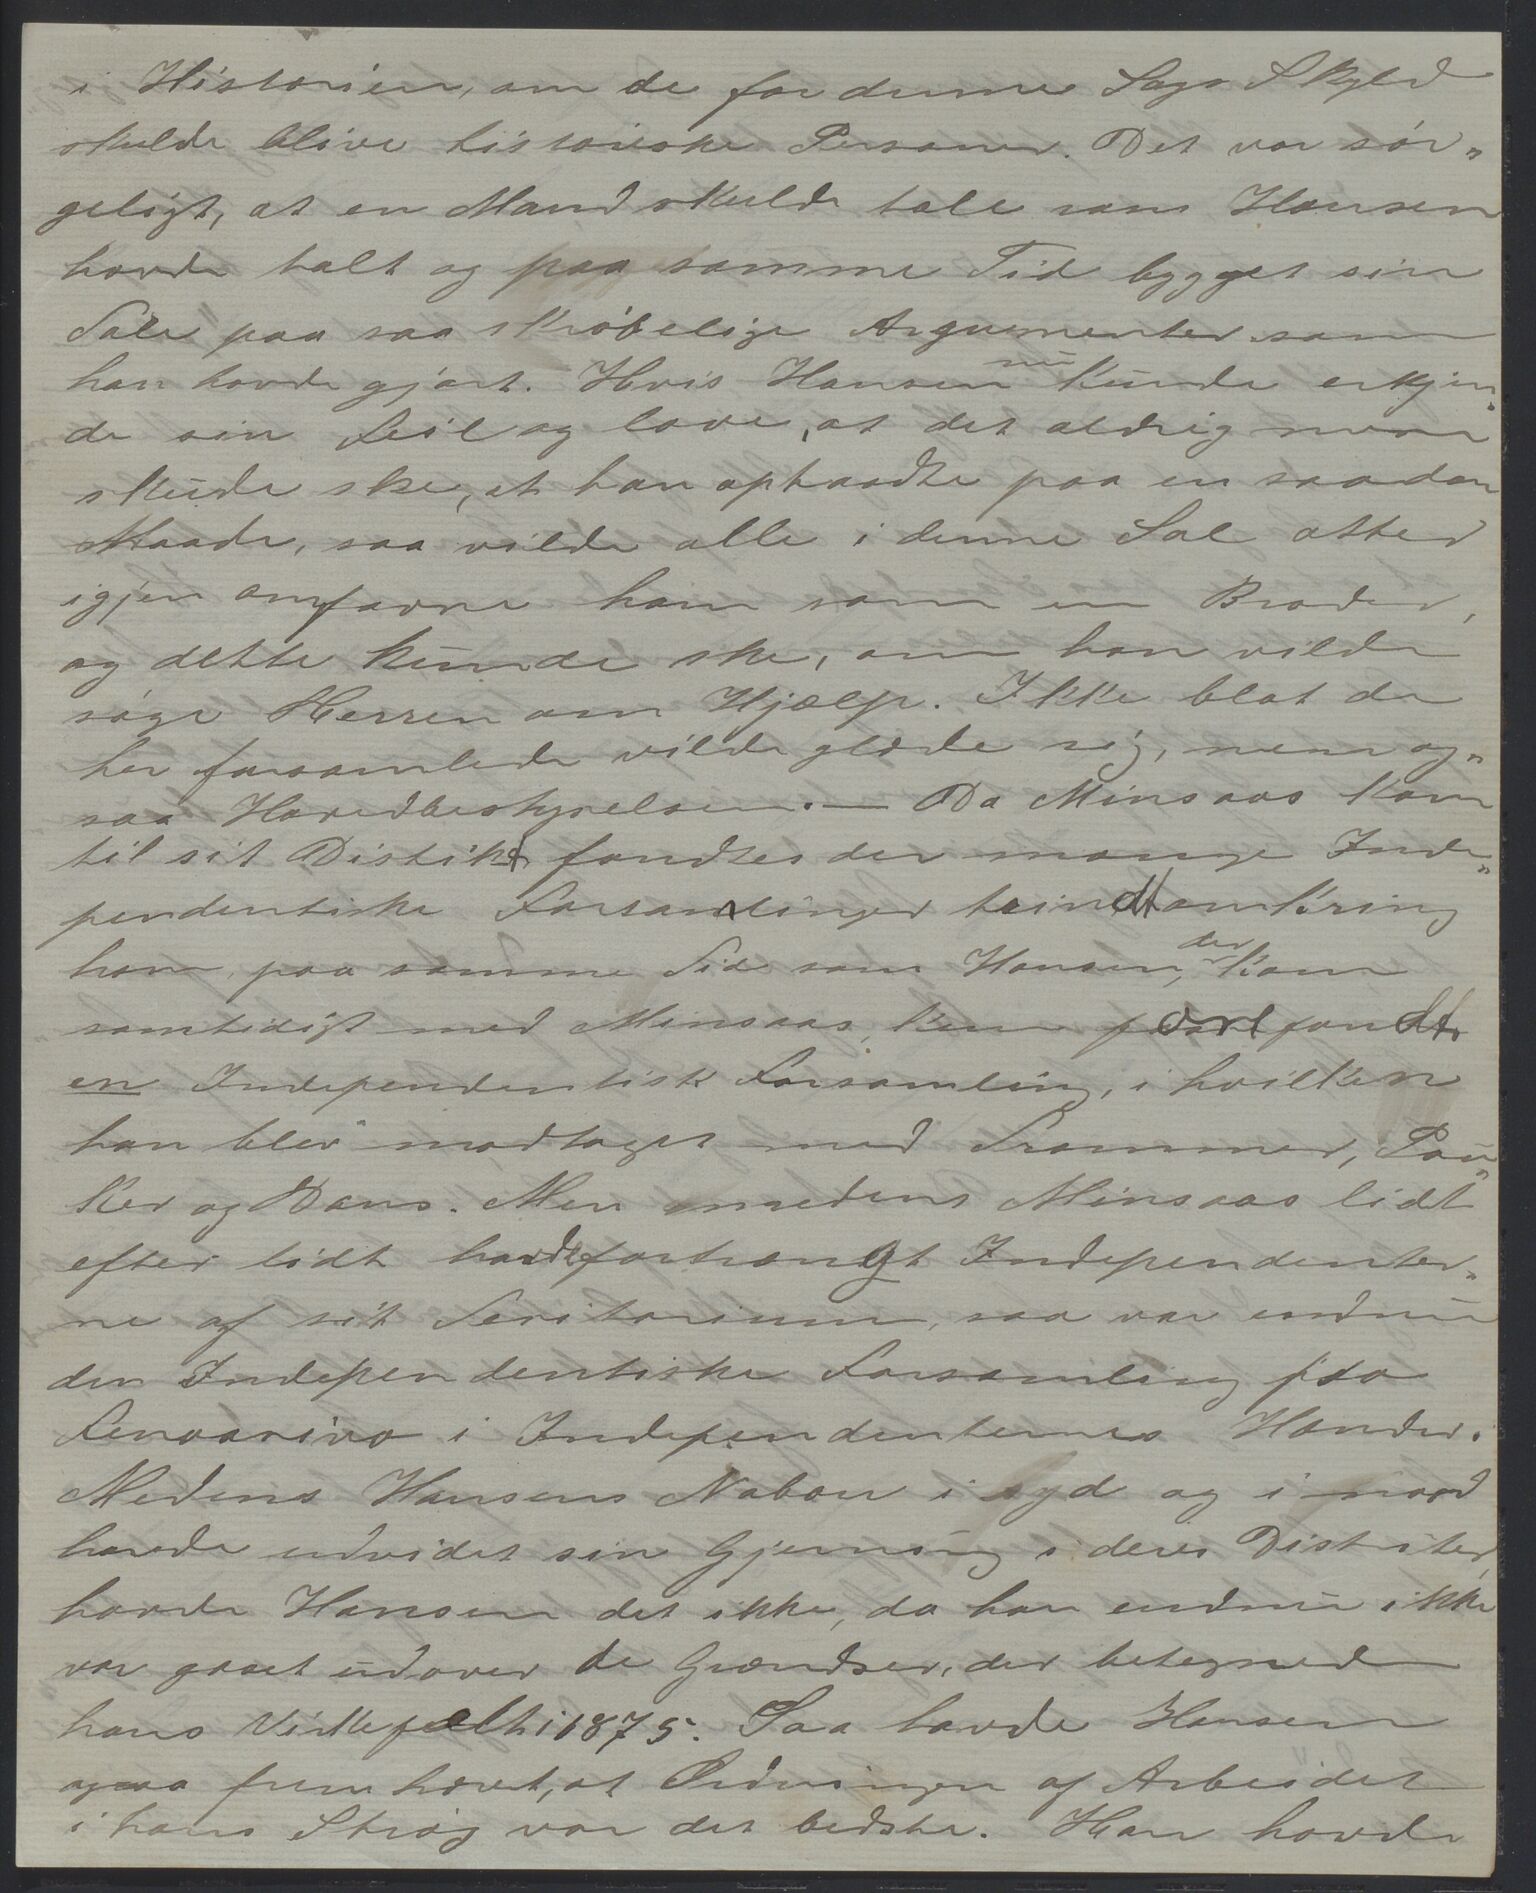 i Historien, om de for denne Sags Skyld
skulde blive historiske Personer. Det var sör„
geligt, at en Mand skulde tale som Hansen
havde talt og paa samme Tid bygget sin
Tale paa saa skröbelige Argumenter som
han havde gjort. Hvis Hansen nu kunde erkjen„
de sin Feil og love, at det aldrig mere
skude ske, at han optraadte paa en saadan
Maade, saa vilde alle i denne Sal atter
igjen omfavne ham som en Broder,
og dette kunde ske, om han vilde
söge Herren om Hjælp. Ikke blot de
her forsamlede vilde glæde sig, men og„
saa Hovedbestyrelsen. — Da Minsaas kom
til sit Distikt fandtes der mange Inde„
pendentiske Forsamlinger rundt omkring
ham, paa samme Tid som Hansen, der kom
samtidigt med Minsaas, kun forefandt
en Independentisk Forsamling, i hvilken
han blev modtaget med Trommer, Pau„
ker og Dans. Men medens Minsaas lidt
efter lidt havde fortrængt Independenter„
ne af sit Teritorium, saa var endnu
den Independentiske Forsamling paa
Fenoarivo i Independenternes Hænder.
Medens Hansens Naboer i syd og i nord
havde udvidet sin Gjerning i deres Distrikter,
havde Hansen det ikke, da han endnu ikke
var gaaet udover de Grændser, der betegnede
hans Virkefælt i 1875. Saa havde Hansen
ogsaa fremhævet, at Ordningen af Arbeidet
i hans Strög var det bedste. Han havde